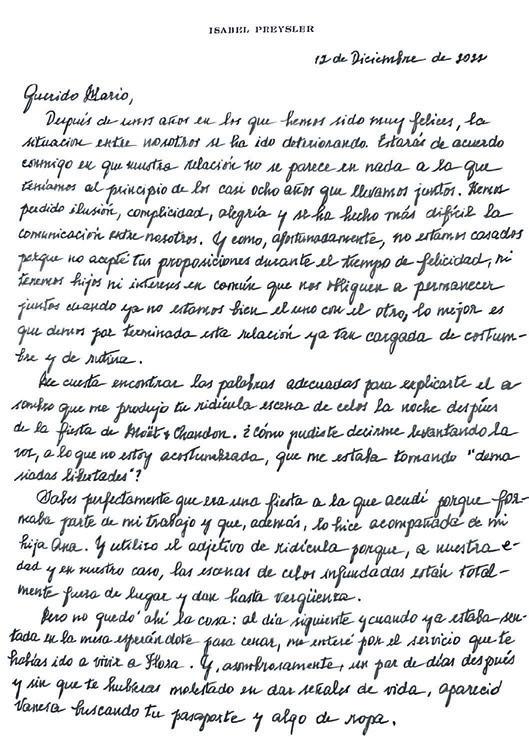 ISABEL PREYSLER
12 de Diciembre de 2022
Querido Mario,
Después de unos años en los que hemos sido muy felices, la
situación entre nosotros se ha ido deteriorando. Estarás de acuerdo
conmigo en que nuestra relación no se parece en nada a la que
teníamos al principio de los casi ocho años que llevamos juntos. Hemos
perdido ilusión, complicidad, alegría y se ha hecho más difícil la
comunicación entre nosotros. Y como, afortunadamente, no estamos casados
porque no acepté tus proposiciones durante el tiempo de felicidad, ni
tenemos hijos ni intereses en común que nos obliguen a permanecer
juntos cuando ya no estamos bien el uno con el otro, lo mejor es
que demos por terminada esta relación ya tan cargada de costum-
bre y de rutina.
Me cuesta encontrar las palabras adecuadas para explicarte el a
sombro que me produjo tu ridícula escena de celos la noche después
de la fiesta de Moët & Chandon. ¿Cómo pudiste decirme levantando la
voz, a lo que no estoy acostumbrada, que me estaba tomando "dema
siadas libertades"?
Sabes perfectamente que era una fiesta a la que acudí porque for-
maba parte de mi trabajo y que, además, lo hice acompañada de mi
hija Ana. Y utilizo el adjetivo de ridícula porque, a nuestra e-
dad y en nuestro caso, las escenas de celos infundadas están total-
mente fuera de lugar y dan hasta vergüenza.
Pero no quedó ahí la cosa: al día siguiente y cuando ya estaba sen-
tada en la mesa esperándote para cenar, me enteré por el servicio que te
habías ido a vivir a Flora. Y, asombrosamente, un par de días después
y sin que te hubieras molestado en dar señales de vida, apareció
Vanesa buscando tu pasaporte y algo de ropa.